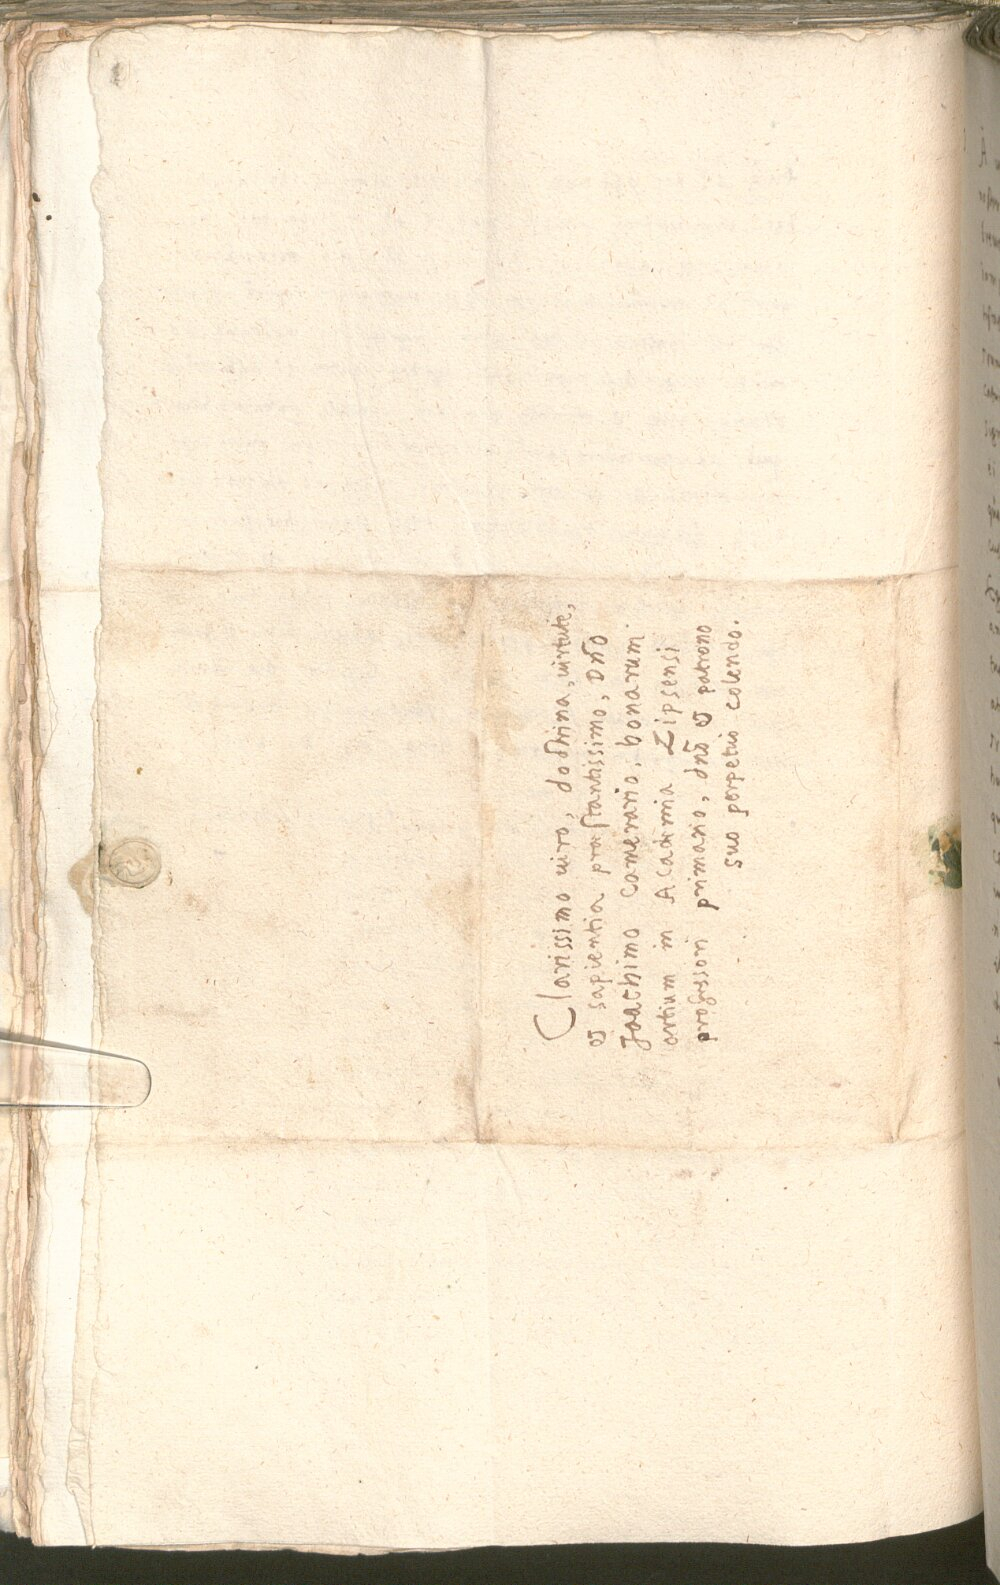 Clarissimo uiro, doctrina, uirtute,
& sapientia præstantissimo, Dño
Joachimo Camerario, bonarum
artium in Academia Lipsensi
professori primario, dño & patrono
suo perpetuo colendo.